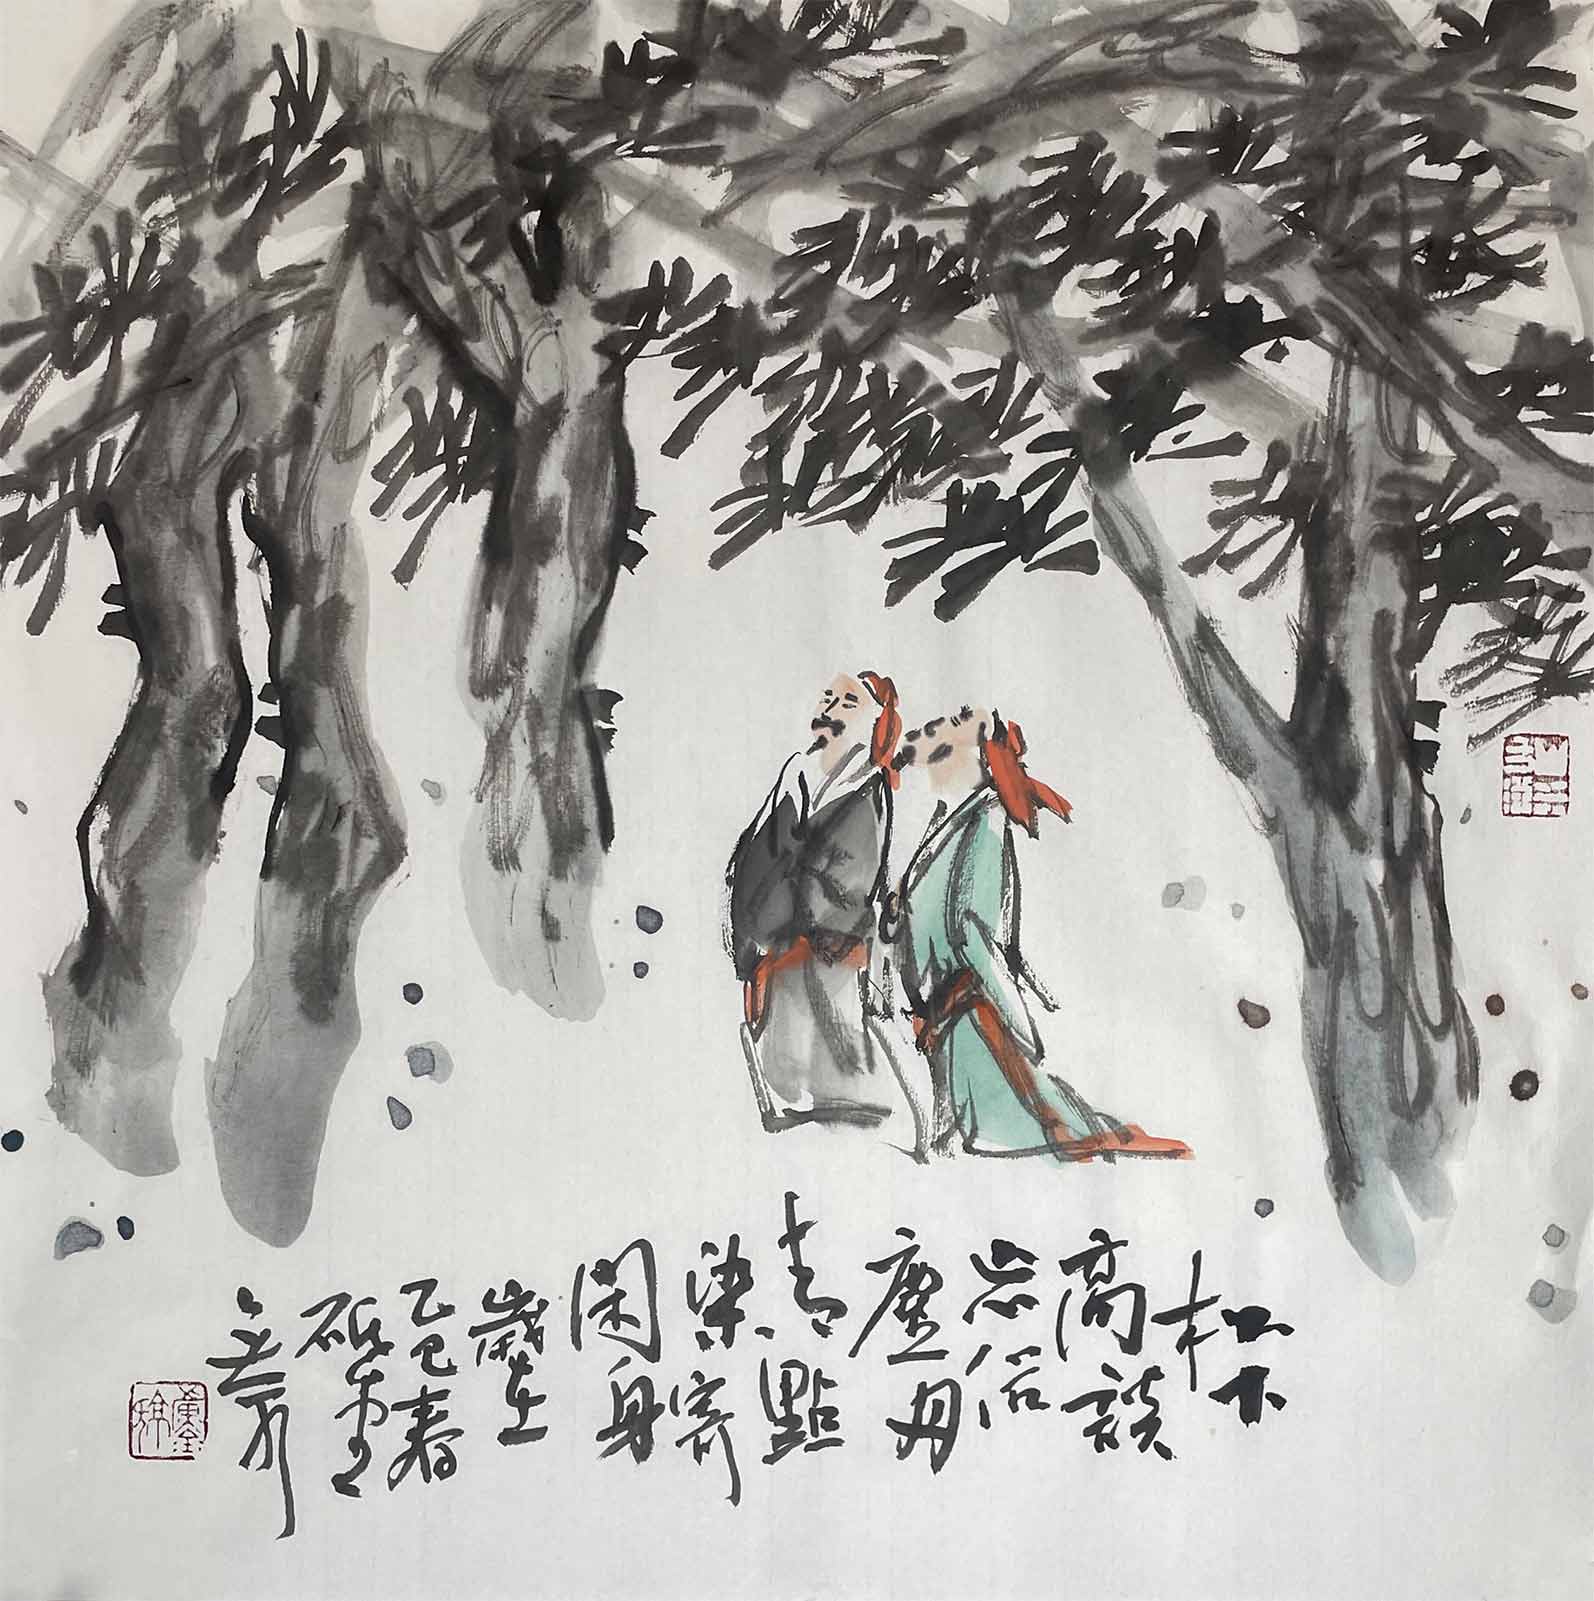 松下
高談
忘俗
塵丹
青點
染寄
閑身
歲在
乙巳春